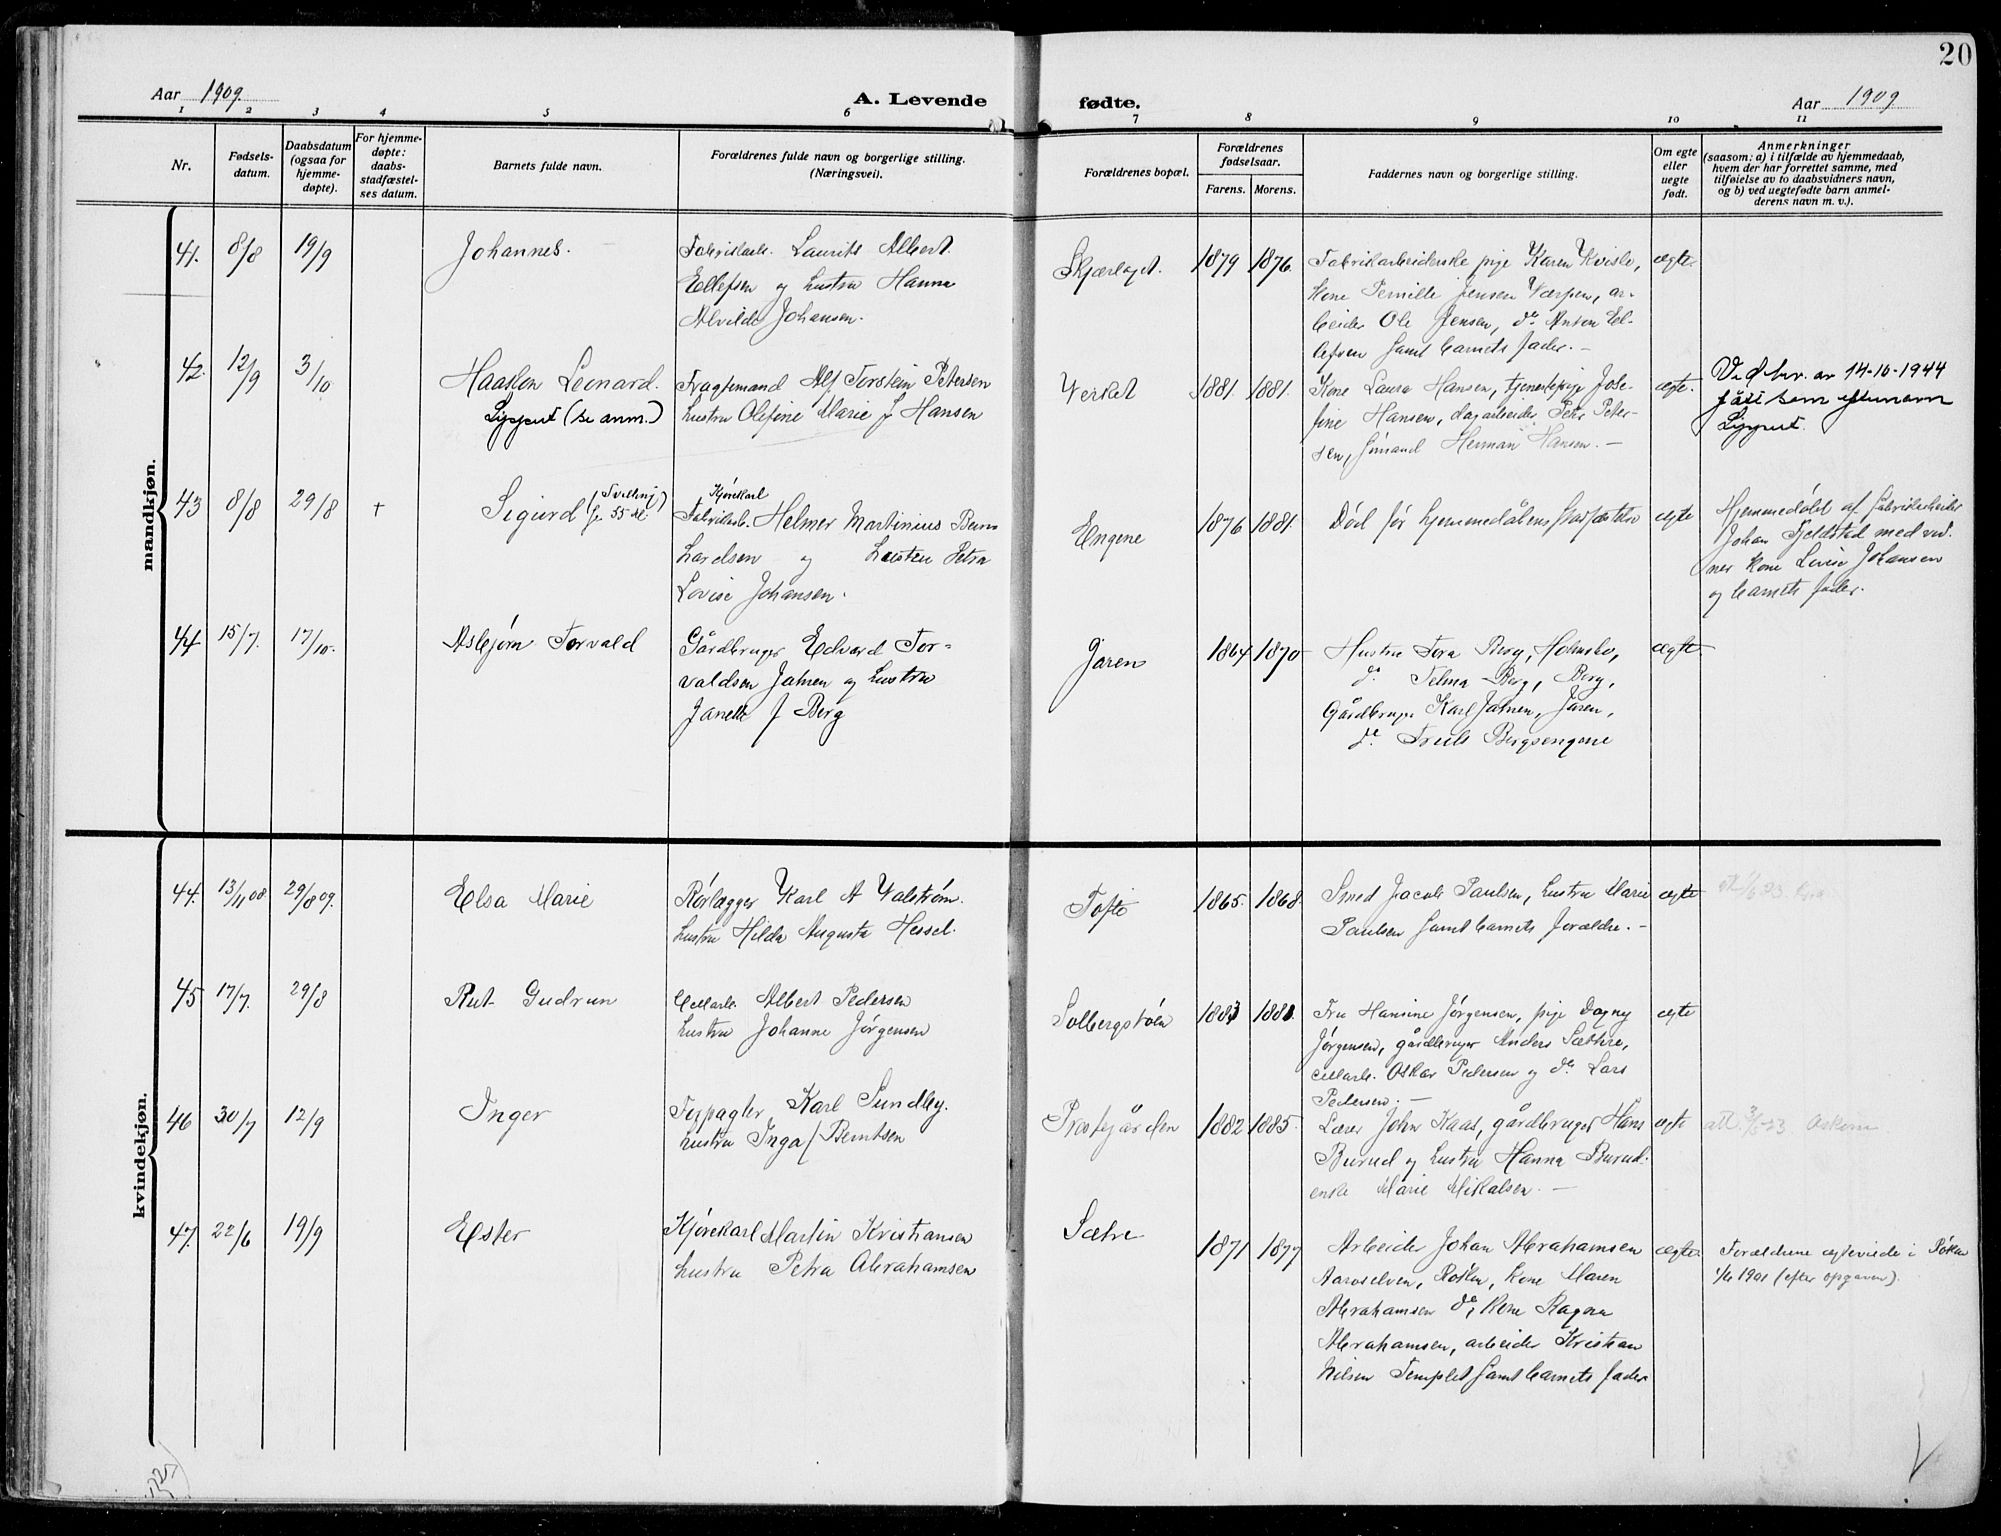 20
Aar 1909.
A. Levende fødte.
Aar 1909
1 2 3 4 5 6 7 8 9 10 11
Nr.
Fødsels-
datum.
Daabsdatum
(ogsaa for
hjemme-
døpte).
For hjemme-
døpte:
daabs-
stadfæstel-
ses datum.
Barnets fulde navn.
Forældrenes fulde navn og borgerlige stilling.
(Næringsvei).
Forældrenes bopæl.
Forældrenes
fødselsaar.
Farens. Morens.
Faddernes navn og borgerlige stilling.
Om egte
eller
uegte
født.
Anmerkninger
(saasom: a) i tilfælde av hjemmedaab,
hvem der har forrettet samme, med
tilføielse av to daabsvidners navn,
og b) ved uegtefødte barn anmel-
derens navn m. v.).
mandkjøn.
41. 8/8 19/9 Johannes.
Fabrikarb. Laurits Albert
Ellefsen og hustru Hanna
Alvilde Johansen.
Skjærlaget. 1879 1876.
Fabrikarbeiderske pige Karen Kvisle,
Kone Pernille Jensen Værpen, ar-
beider Ole Jensen, do Anton El-
lefsen samt barnets fader. –
ægte.
42. 12/9 3/10 Haakon Leonard.
Liggut (se anm.)
Fragtemand Alf Torstein Petersen
hustru Olefine Marie f Hansen
Verket 1881. 1881.
Kone Laura Hansen, tjenestepige Jose-
fine Hansen, dagarbeider Petr Peter-
sen, sømand Herman Hansen. –
ægte.
Ved br. av 14-10-1944
fått som efternavn
Liggut.
43 8/8 29/8 + Sigurd (Tvilling
55 )
Kjørekarl
Fabrikarb. Helmer Martinius Bern
Lardsen og hustru Petra
Lovise Johansen.
Engene 1876 1881.
Død før hjemmedåbens stadfæstelse
ægte
Hjemmedøbt af fabrikarbeider
Johan Fjeldstad med vid-
ner kone Lovise Johansen
og barnets fader.
44 15/7. 17/10. Asbjørn Torvald
Gårdbruger Edvard Tor-
valdsen Jahren og hustru
Janette f Berg
Jaren 1864 1870
Hustru Tora Berg, Holmsbo,
do. Telma Berg, Berg,
Gårdbruger Karl Jahren, Jaren,
do. Truls Bergsengene
ægte.
kvindekjøn.
44. 13/11 08 29/8 09. Elsa Marie
Rørlægger Karl A Valstrøm.
hustru Hilda Augusta Hessel.
Tofte 1865. 1868.
Smed Jacob Paulsen, hustru Marie
Paulsen samt barnets forældre. –
ægte
45 17/7. 29/8 Rut Gudrun
Cellarb. Albert Pedersen
hustru Johanne Jørgensen
Solbergstøen 1883 1881.
Fru Hansine Jørgensen, pige Dagny
Jørgensen, gårdbruger Anders Sæthre,
cellarb. Oskar Pedersen og do Lars
Pedersen. –
ægte
46 30/7 12/9 Inger
Karl Sundby.
hustru Inga f Berntsen
Prestegården 1882 1885.
Lærer John Kaas, gårdbruger Hans
Burud og hustru Hanna Burud.
enke Marie Mikalsen. –
ægte
att. 3/5 23. Askim
47. 22/6 19/9 Ester
Kjørekarl Martin Kristiansen
hustru Petra Abrahamsen
Sætre 1871 1877
Arbeider Johan Abrahamsen
Aaroselven, Røken, kone Maren
Abrahamsen do, Kone Ragna
Abrahamsen, arbeider Kristian
Nilsen Templet samt barnets fader
ægte.
Forældrene ægteviede i Røken
1/6 1901 (efter opgaven).